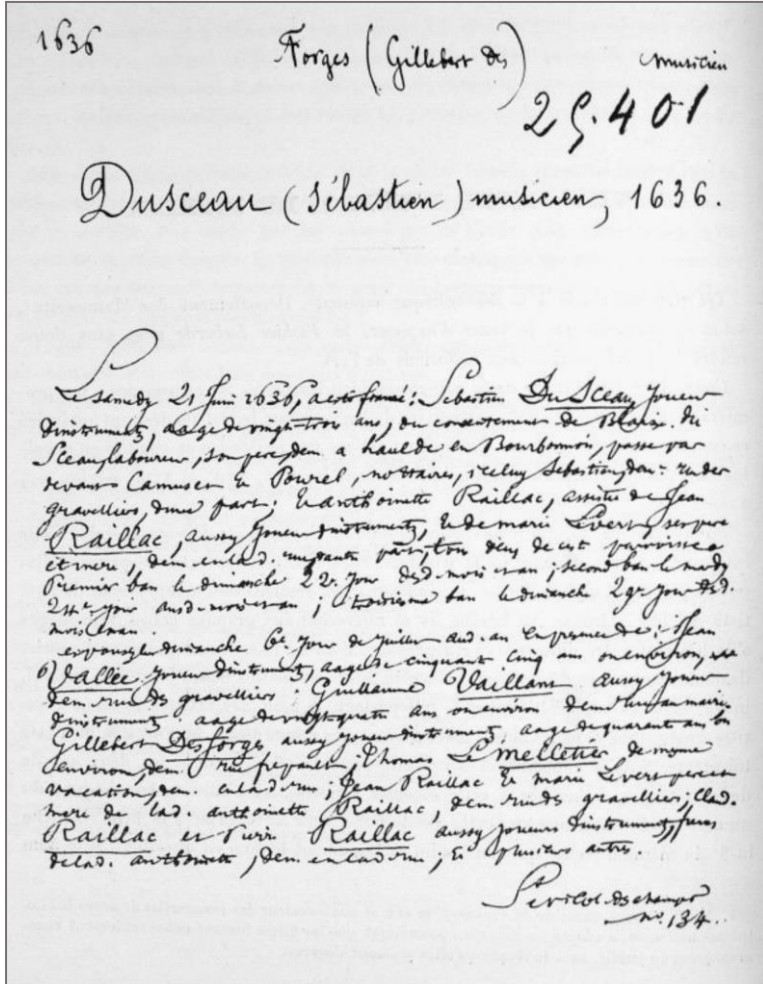 1636
Forges (Gillebert des) musicien
25.401
Dusceau (Sébastien) musicien, 1636.
Le samedy 21 Juin 1636, a esté fiancé: Sebastien DuSceau Joueur
dinstrumentz, aage de vingt trois ans, du consentement de Blaise du
Sceau laboureur, son pere, dem. a haulde en Bourbonnois, passé par
devant Camuset et Pourel, nottaires, iceluy Sebastien, dem. rue des
gravelliers, d'une part; Et anthoinette Raillac, assistée de Jean
Raillac, aussy Joueur dinstrumentz, et de marie Levert, ses pere
et mere, dem. en lad. rue, dautre part, tous deux de cest parroisse
Premier ban le dimanche 22e Jour desd. mois et an; second ban le mardy
24e Jour ausd. mois et an; troisieme ban le dimanche 29e Jour desd.
mois et an.
espousez le dimanche 6e Jour de Juillet aud. an En presence de: Jean
Vallée Joueur dinstrumentz, aagé de cinquante cinq ans ou environ,
dem. rue des gravelliers; Guillaume Vaillant aussy Joueur
dinstrumentz aagé de vingt quatre ans ou environ dem. rue au maire;
Gillebert Desforges aussy Joueur dinstrumentz, aagé de quarente ans ou
environ, dem. rue frepault; Thomas Le melletier de mesme
vacation, dem. en lad. rue; Jean Raillac et marie Levert pere et
mere de lad. anthoinette Raillac, dem. rue des gravelliers;
Raillac et Pierre Raillac aussy Joueurs dinstrumentz, freres
de lad. anthoinette, dem. en lad. rue; et plusieurs autres.
St nicol. des champs
no. 134.